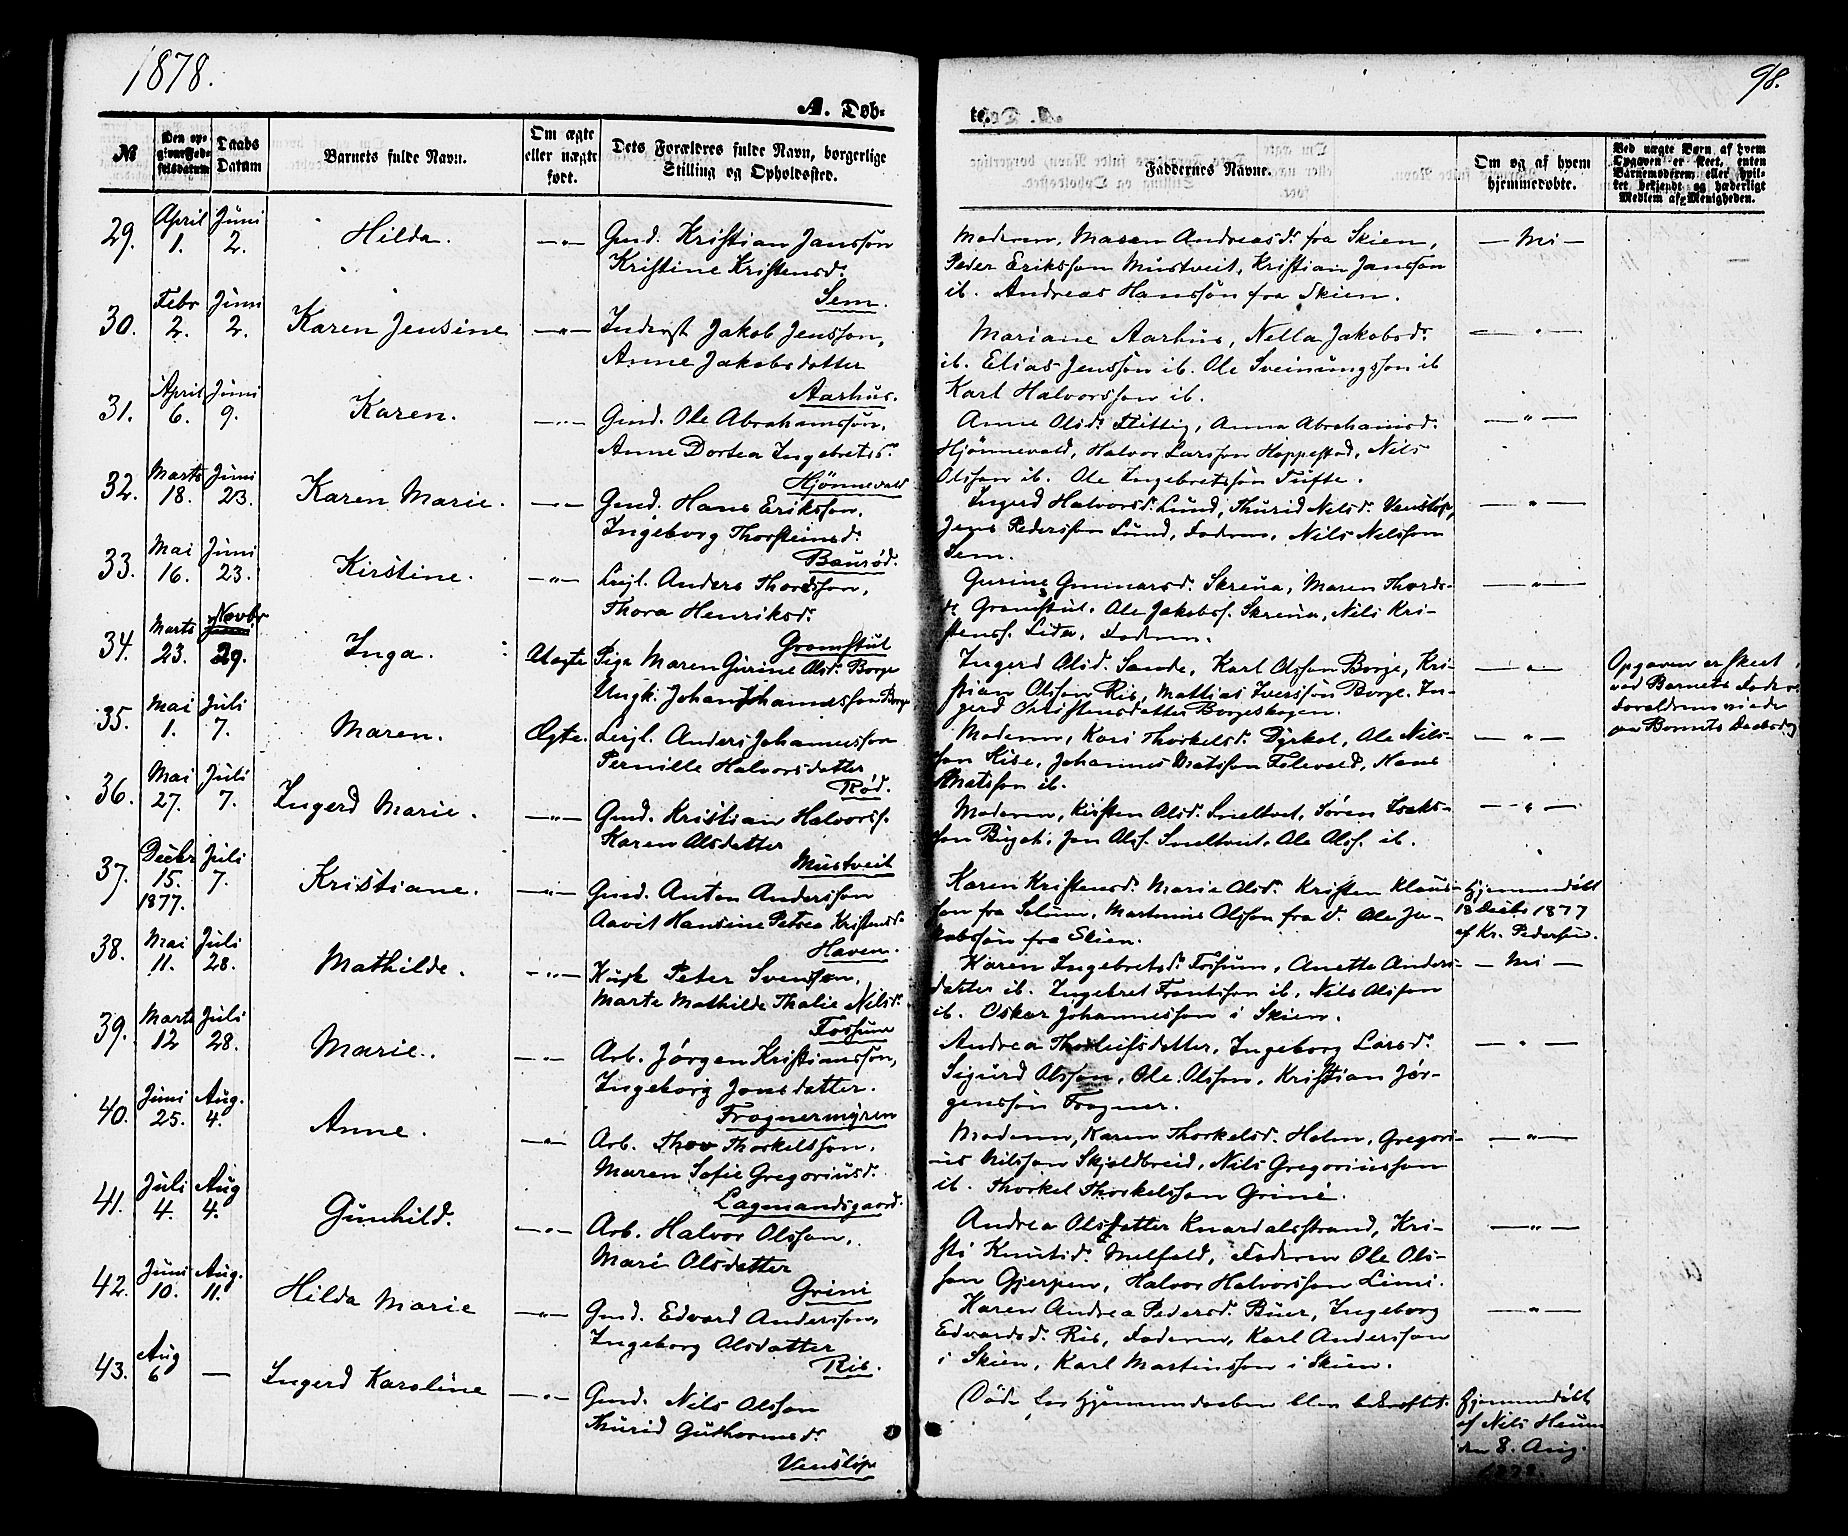 1878.
98.
A. Døb-
te.
№
Den op-
givne Fød-
selsdatum
Daabs
Datum
Barnets fulde Navn.
Om ægte
eller uægte
født.
Dets Forældres fulde Navn, borgerlige
Stilling og Opholdssted.
Faddernes Navne.
Om og af hvem
hjemmedøbt.
Ved uægte Børn af hvem
Opgaven er skeet, enten
Barnemoderen eller hvil-
ket bekjendt og hæderligt
Medlem af Menigheden.
29. April 1. Juni 2. Hilda. — " —
Gmd. Kristian Jansson
Kristine Kristensd.
Sem.
Moderen, Maren Andreasd. fra Skien,
Peder Eriksson Mustveit, Kristian Jansson
ib. Andreas Hansson fra Skien.
— Nei —
30. Febr 2. Juni 2. Karen Jensine — " —
Inderst Jakob Jensson,
Anne Jakobsdatter
Aarhus.
Mariane Aarhus, Nella Jakobsd.
ib. Elias Jensson ib. Ole Sveinungsson ib
Karl Halvorsson ib.
— " —
31. April 6. Juni 9. Karen. — " —
Gmd. Ole Abrahamsson,
Anne Dortea Ingebretsd.
Hjønnevald
Anne Olsd. Flittig, Anna Abrahamsd.
Hjönnevald, Halvor Larsson Hoppestad, Nils
Olsson ib. Ole Ingebretsson Tufte.
— " —
32. Marts 18. Juni 23. Karen Marie. — " —
Gmd. Hans Eriksson,
Ingeborg Thorsteinsd.
Baurød.
Ingerd Halvorsd. Lund, Thurid Nilsd. Venstøp,
Jens Pedersson Lund, Faderen, Nils Nilsson
Sem.
— " —
33. Mai 16. Juni 23. Kirstine. — " —
Leijl. Anders Thordsson,
Thora Henriksd.
Gromstul
Gurine Gunnarsd. Skreua, Maren Thords-
d. Gromstul, Ole Jakobss. Skreua, Nils Kri-
stenss. Lida, Faderen.
— " —
34. Marts 23. Novbr Juni 29. Inga. Uægte
Pige Maren Gurine Olsd. Borge
Ungk. Johan Johannesson Borge
Ingerd Olsd. Sande, Karl Olsson Borge, Kri-
stian Olsson Ris, Mattias Iversson Borge. In-
gerd Christensdatter Borgeskogen.
— " —
Opgaven er skeet
ved Barnets Fader
Forældrene viede
paa Barnets Daabsdag
35. Mai 1. Juli 7. Maren. Ægte.
Leijl. Anders Johannesson
Pernille Halvorsdatter
Rød.
Moderen, Kari Thorkelsd. Dyrkol, Ole Nils-
son Kise, Johannes Matsson Folevald, Hans
Matsson ib.
— " —
36. Mai 27. Juli 7. Ingerd Marie. — " —
Gmd. Kristian Halvorss.
Karen Olsdatter
Mustveit
Moderen, Kirsten Olsd. Sneltvet, Søren Isaks-
son Bugot, Jon Olss. Sneltveit, Ole Olss. ib.
— " —
37. Decbr 15. 1877. Juli 7. Kristiane. — " —
Gmd. Anton Andersson
Aavit Hansine Petrea Kristensd.
Haven.
Karen Kristensd. Marie Olsd. Kristen Klaus-
son fra Solum, Martinius Olsson fra d. Ole Ja-
kobsson fra Skien.
Hjemmedøbt
18 Decbr 1877
af Kr. Pedersen.
38. Mai 11. Juli 28. Mathilde. — " —
Husk Peter Svensson,
Marte Mathilde Thalie Nilsd.
Fossum
Karen Ingebretsd. Fossum, Anette Anders-
datter ib. Ingebret Frantsson ib. Nils Olsson
ib. Oskar Johannesson i Skien.
— Nei —
39. Marts 12 Juli 28. Marie. — " —
Arb. Jørgen Kristiansson,
Ingeborg Jonsdatter.
Frognermyren
Andrea Thorleifsdatter, Ingeborg Larsd.
Sigurd Olsson, Ole Olsson, Kristian Jør-
gensson Frogner.
— " —
40. Juni 25. Aug. 4. Anne. — " —
Arb. Thov Thorkelsson,
Maren Sofie Gregoriusd.
Lagmandsgaard.
Moderen, Karen Thorkelsd. Holm, Gregori-
us Nilsson Skjeldbreid, Nils Gregoriusson
ib. Thorkel Thorkelsson Grini.
— " —
41. Juli 4. Aug 4. Gunhild. — " —
Arb. Halvor Olsson,
Mari Olsdatter
Grini
Andrea Olsdatter Knardalsstrand, Kri-
sti Knutsd. Melfald, Faderen Ole Ols-
son Gjerpen, Halvor Halvorsson Limi.
— " —
42. Juni 10. Aug. 11. Hilda Marie — " —
Gmd. Edvard Andersson,
Ingeborg Olsdatter
Ris.
Karen Andrea Pedersd. Buer, Ingeborg
Edvardsd. Ris, Faderen, Karl Andersson
i Skien, Karl Martinsson i Skien.
— " —
43. Aug 6 — Ingerd Karoline — " —
Gmd. Nils Olsson
Thurid Guthormsd.
Venstøp
Døde før Hjemmedaaben blev bekræftet.
Hjemmedøbt
af Nils Heum
den 8. Aug.
1878.